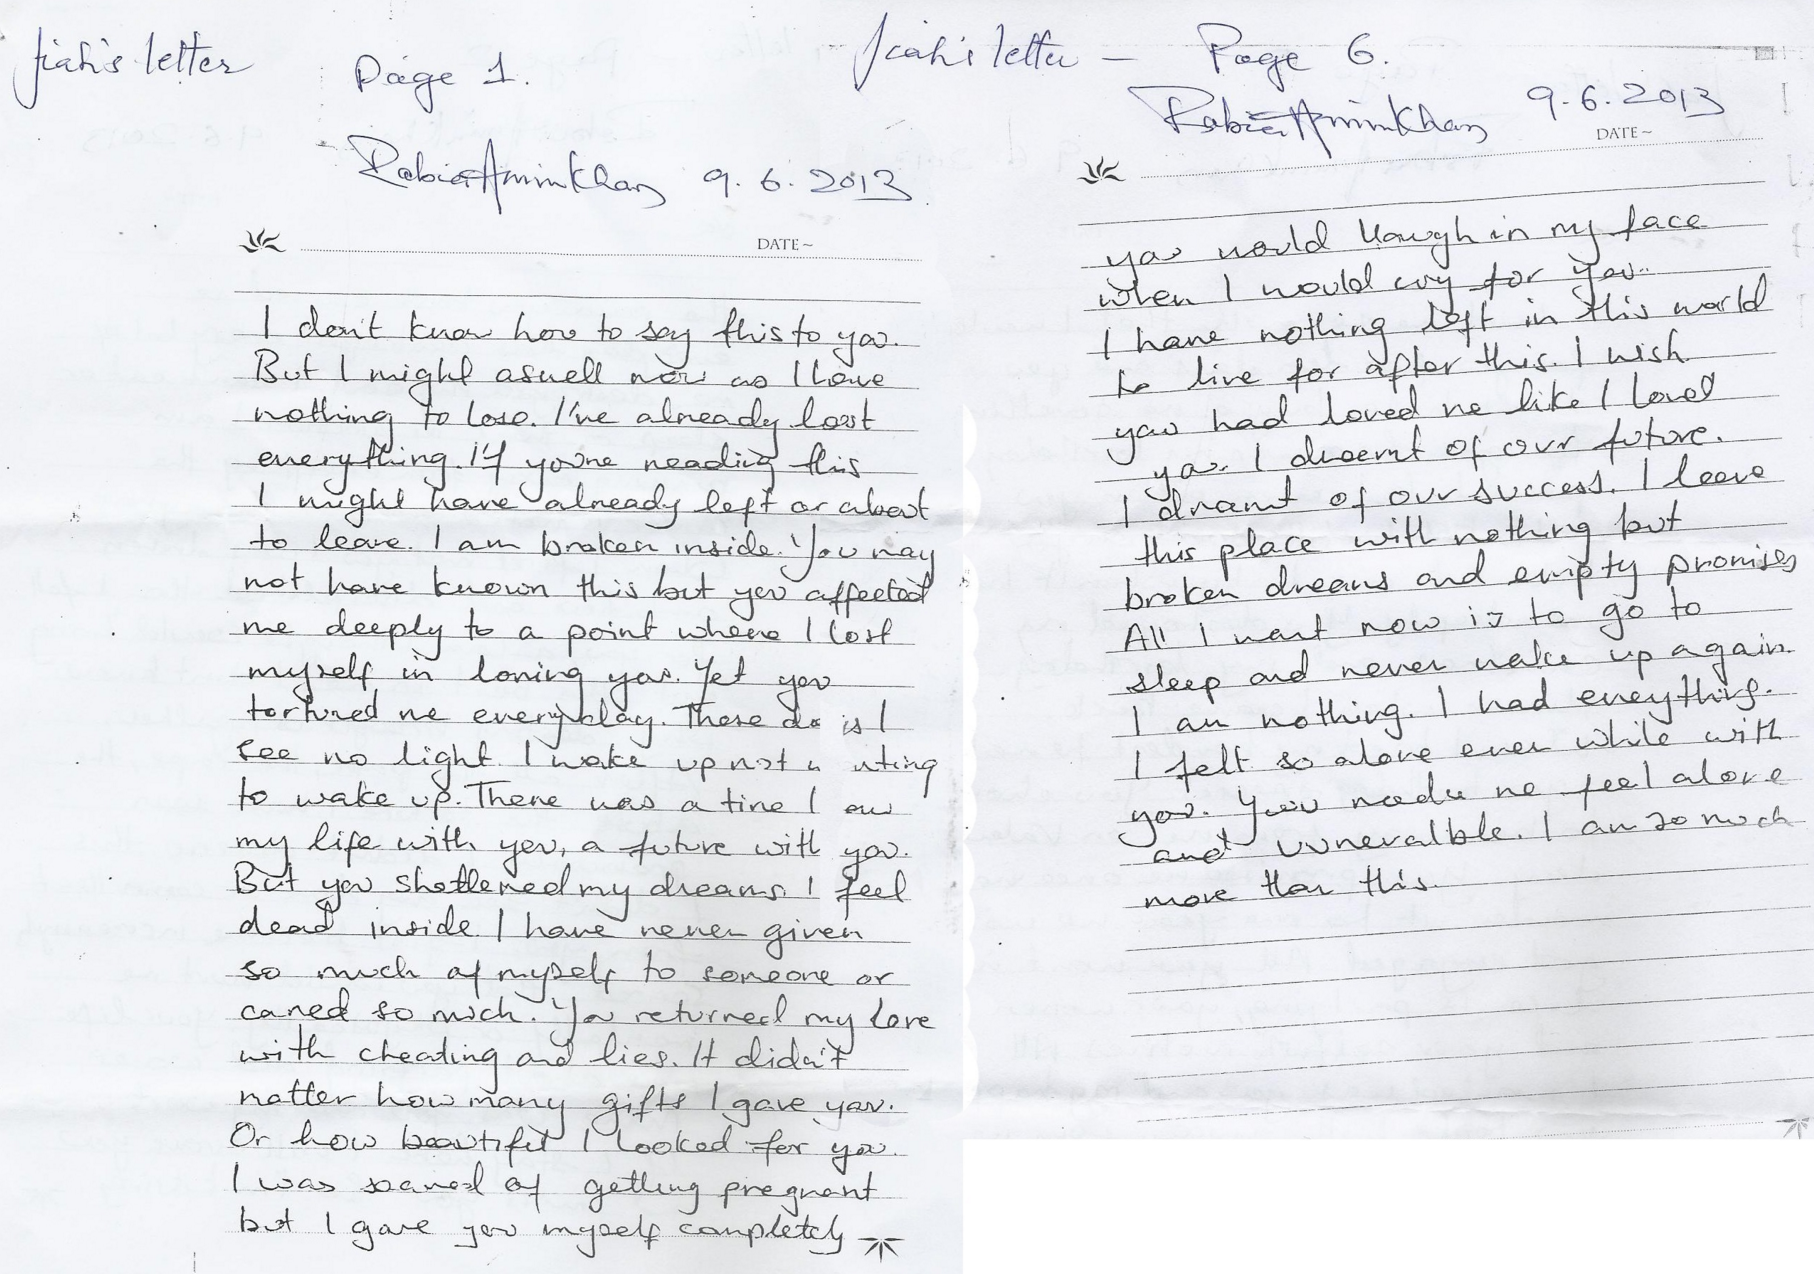 Jiah's letter
Page 1.
Rabia Amin Khan 9.6.2013
DATE~
I don't know how to say this to you.
But I might aswell now as I have
nothing to lose. I've already lost
everything. If you're reading this
I might have already left or about
to leave. I am broken inside. You may
not have known this but you affected
me deeply to a point where I lost
myself in loving you. Yet you
tortured me everyday. These da is I
see no light I wake up not
to wake up. There was a time I
my life with you, a future with you.
But you shattered my dreams. I feel
dead inside I have never given
so much of myself to someone or
cared so much. You returned my love
with cheating and lies. It didn't
matter how many gifts I gave you.
Or how beautiful I looked for you.
I was scared of getting pregnant
but I gave you myself completely
Jiah's letter — Page 6.
Rabia Amin Khan 9.6.2013
DATE~
you would laugh in my face
when I would cry for you..
I have nothing left in this world
to live for after this. I wish
you had loved me like I loved
you. I dreamt of our future.
I dreamt of our success. I leave
this place with nothing but
broken dreams and empty promises
All I want now is to go to
sleep and never wake up again.
I am nothing. I had everything.
I felt so alone even while with
you. You me feel alone
and I am so much
more than this.